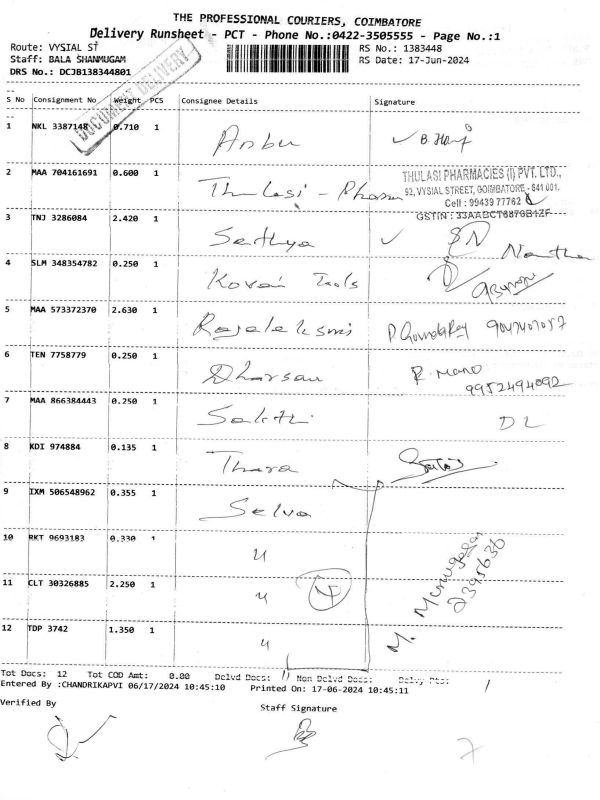 THE PROFESSIONAL COURIERS, COIMBATORE
Delivery Runsheet - PCT - Phone No.:0422-3505555 - Page No.:1
Route: VYSIAL ST RS No.: 1383448
Staff: BALA SHANMUGAM RS Date: 17-Jun-2024
DRS No.: DCJB138344801
DOCUMENT DELIVERY
S No Consignment No Weight PCS Consignee Details Signature
1 NKL 3387148 0.710 1 Anbu
2 MAA 704161691 0.600 1 Thulasi - Pharm
THULASI PHARMACIES (I) PVT. LTD.,
92, VYSIAL STREET, COIMBATORE - 641 001.
Cell : 99439 77762
GSTIN : 33AABCT6870B1ZF
3 TNJ 3286084 2.420 1 Sathya SN Nantha
4 SLM 348354782 0.250 1 Kovai Tools
5 MAA 573372370 2.630 1 Rajalaksmi
6 TEN 7758779 0.250 1 Dharsan R. Mano
9952494092
7 MAA 866384443 0.250 1 Sakthi DL
8 KDI 974884 0.135 1 Thara
9 IXM 506548962 0.355 1 Selva
10 RKT 9693183 0.330 1 "
11 CLT 30326885 2.250 1 " 4
12 TDP 3742 1.350 1 "
M. Murugesan
Tot Docs: 12 Tot COD Amt: 0.00 Delvd Docs: 11 Non Delvd Docs: Delvy Pts: 1
Entered By :CHANDRIKAPVI 06/17/2024 10:45:10 Printed On: 17-06-2024 10:45:11
Verified By Staff Signature
7